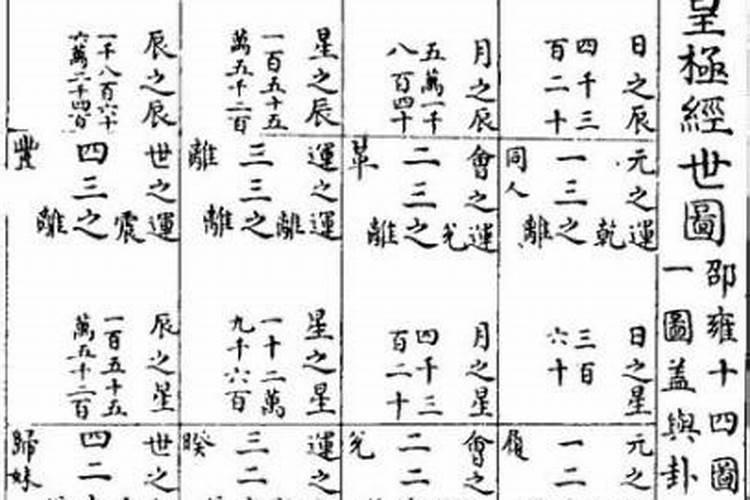 皇極經世圖
邵雍十四圖
一圖蓋與卦
日之辰
四千三
百二十
元之運
一三之
乾離
同人
日之星
三百
六十
元之
一二
履
月之辰
五萬一千
八百四十
會之運
二三之
兌離
革
月之星
四千三
百二十
會之
二二
兌
星之辰
一百五十五
萬五千二百
運之運
三三之
離離
離
星之星
一十二萬
九千六百
運之
三二
睽
辰之辰
一千八百六十
六萬二千四百
世之運
四三之
震離
豐
辰之星
一百五十五
萬五千二百
世之
四二
歸妹